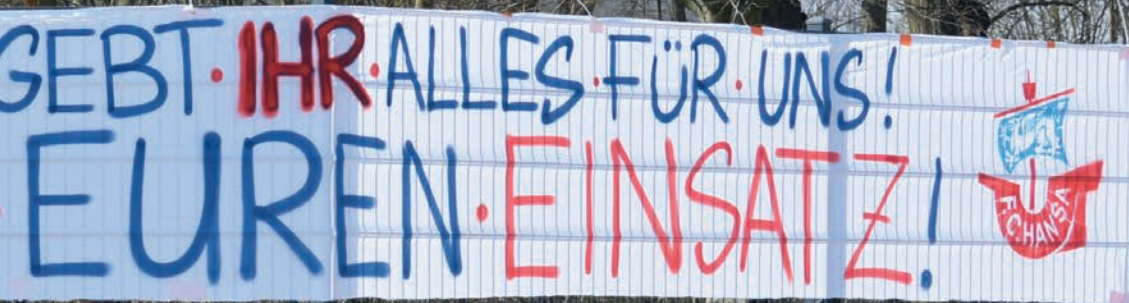 GEBT · IHR · ALLES · FÜR · UNS!
EUREN · EINSATZ!
F.C. HANSA